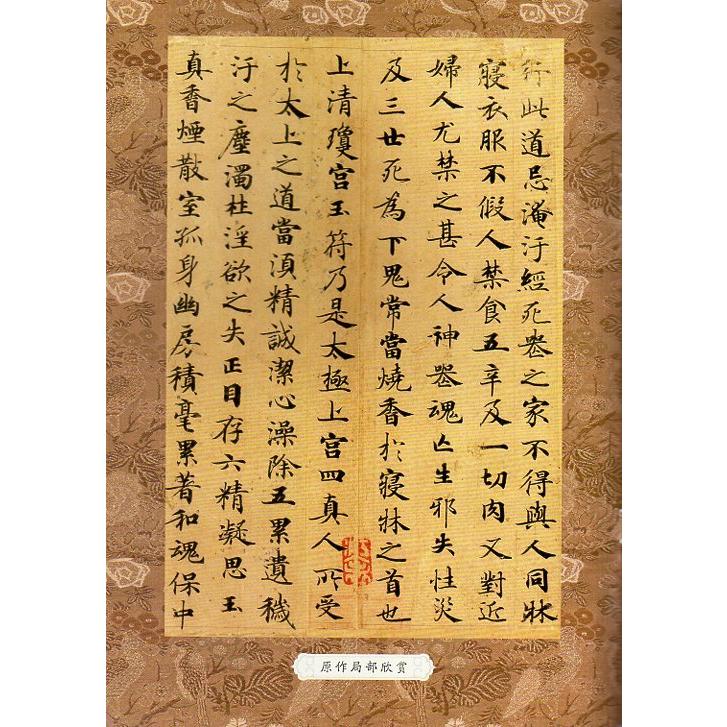 行此道忌淹汙經死丧之家不得與人同牀
寢衣服不假人禁食五辛及一切肉又對近
婦人尤禁之甚令人神喪魂亡生邪失性災
及三世死為下鬼常當燒香於寢牀之首也
上清瓊宮玉符乃是太極上宮四真人所受
於太上之道當湏精誠潔心澡除五累遺穢
汙之塵濁杜淫欲之失正目存六精凝思玉
真香煙散室孤身幽房積毫累著和魂保中
原作局部欣赏